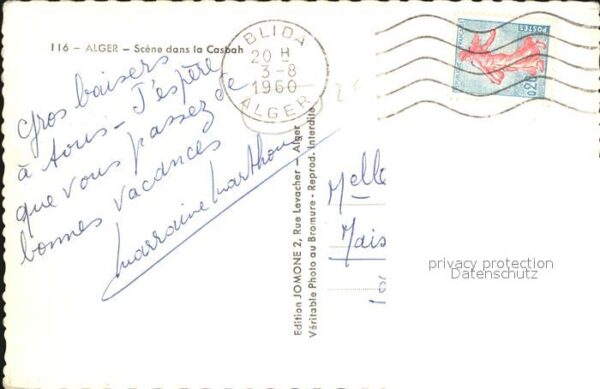 116 - ALGER - Scène dans la Casbah
Gros baisers
à tous - J'espère
que vous passez de
bonnes vacances
Marraine Marthou
BLIDA
20 H
3-8
1960
ALGER
POSTES
0,20
Edition JOMONE 2, Rue Levacher - Alger
Véritable Photo au Bromure - Reprod. Interdite
Melle
Mais
privacy protection
Datenschutz